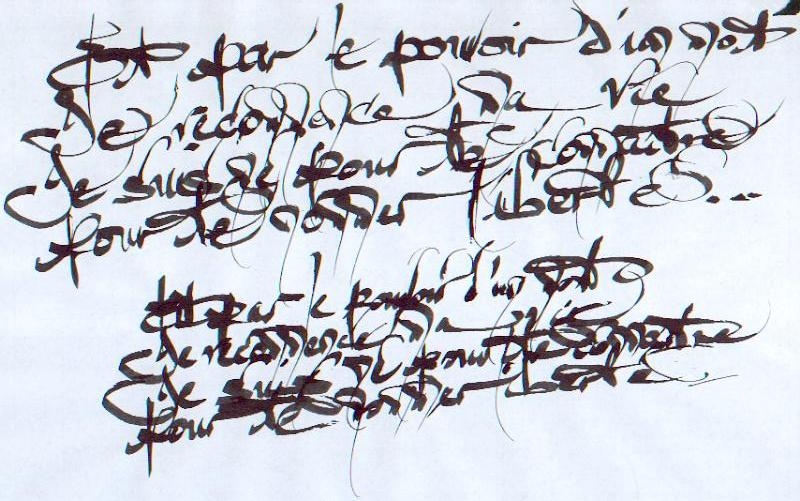 Et par le pouvoir d'un mot
Je recommence ma vie
Je suis né pour te connaître
Pour te nommer Liberté...
Et par le pouvoir d'un mot
Je recommence ma vie
Je suis né pour te connaître
Pour te nommer liberté...